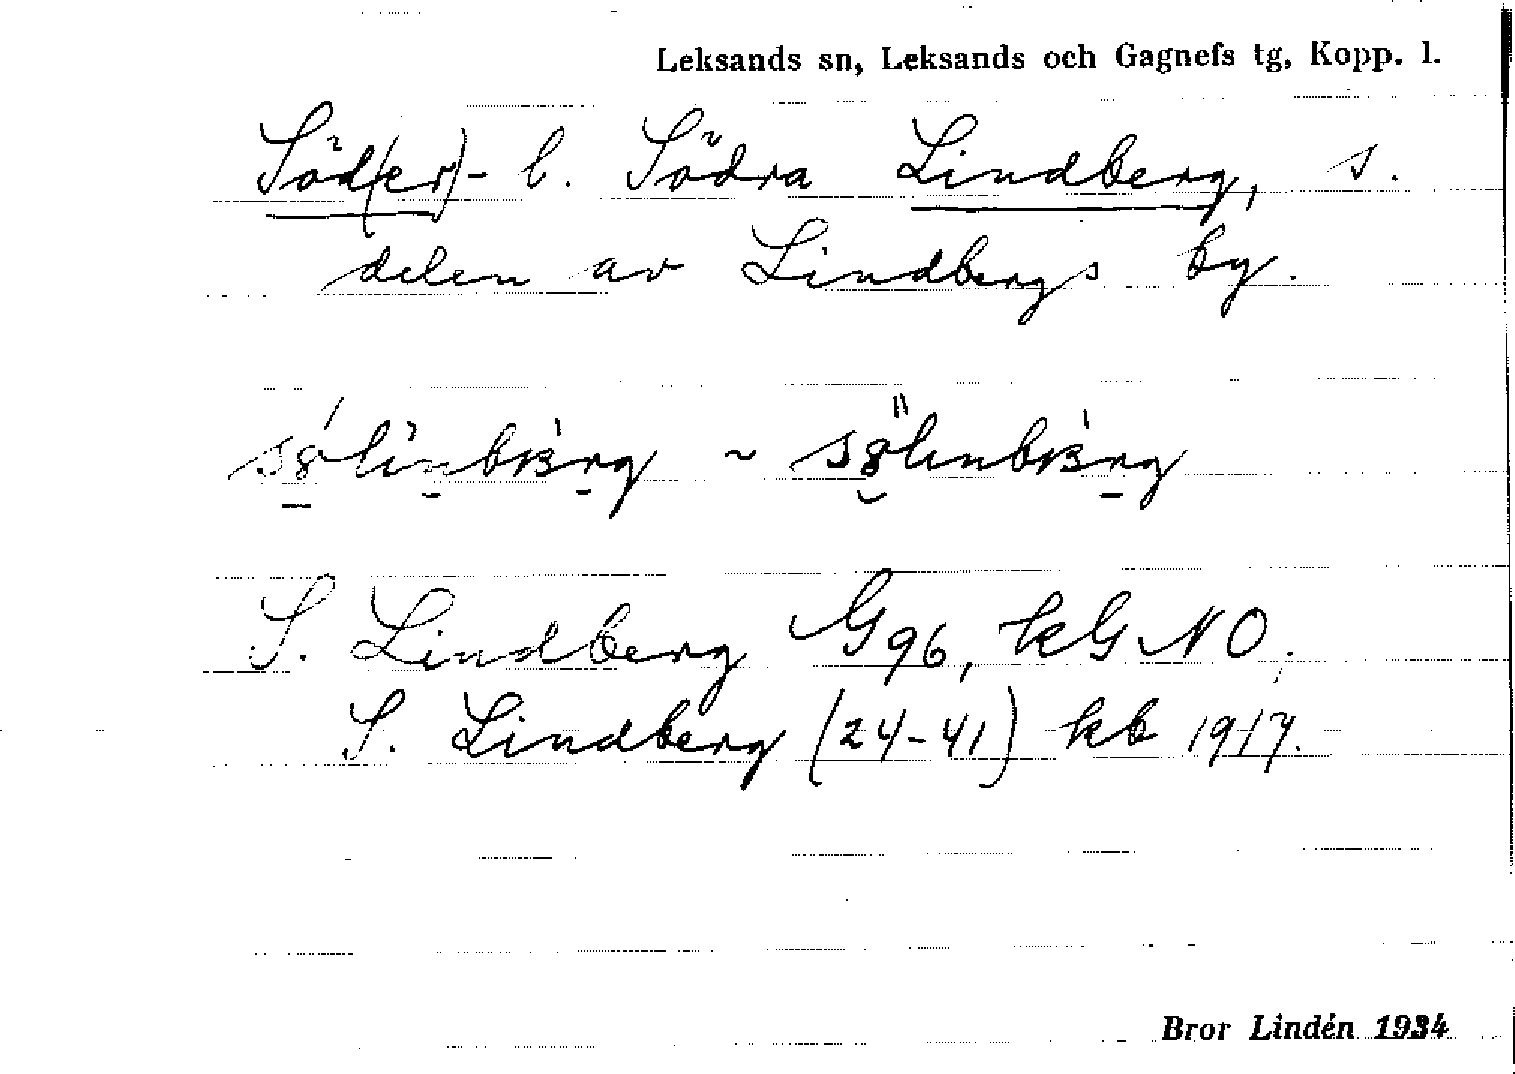 Leksands sn, Leksands och Gagnefs tg, Kopp. l.
Söd(er)- l. Södra Lindberg, s.
delen av Lindbergs by.
S. Lindberg G96, kGNO;
S. Lindberg (24-41) kb 1917.
Bror Lindén 1934